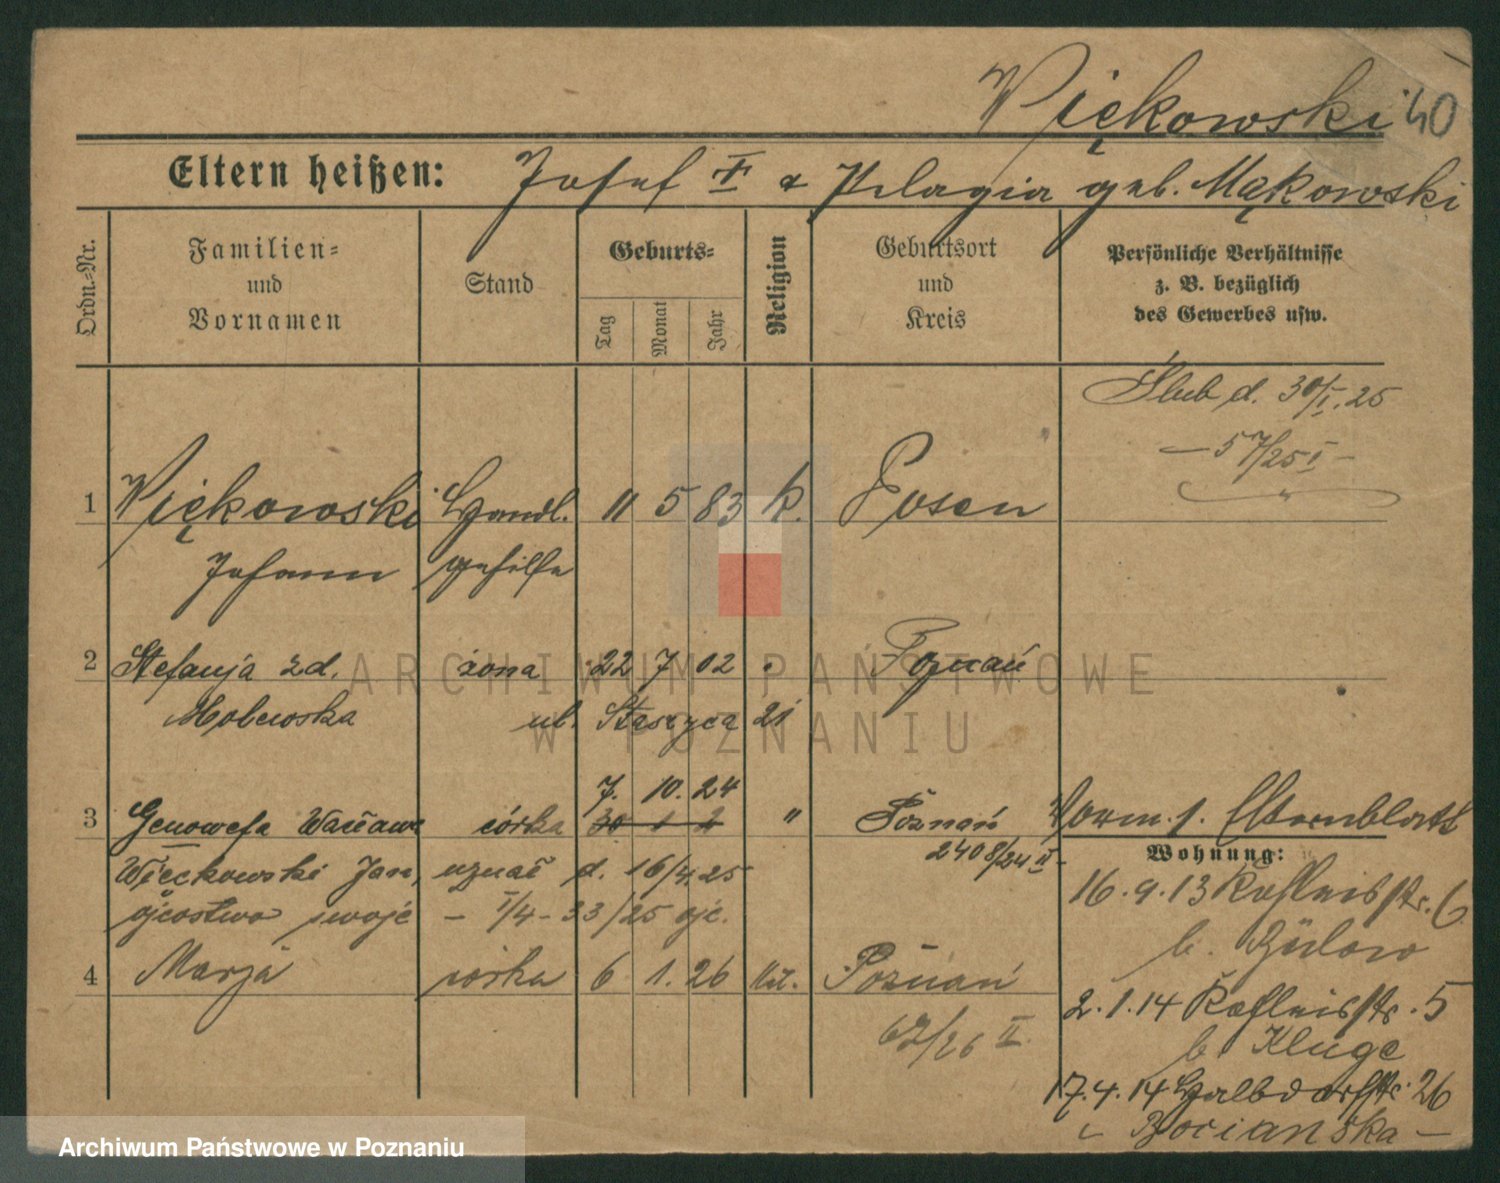 Więkowski 40
Eltern heißen: Josef † & Pelagia geb. Mąkowski
Ordn.-Nr.
Familien- und Vornamen
Stand
Geburts-
Tag Monat Jahr
Religion
Geburtsort und Kreis
Persönliche Verhältnisse
z. B. bezüglich
des Gewerbes usw.
Ślub d. 30/I.25
— 57/25 I —
1 Więkowski Handl. 11 5 83 k. Posen
Johann gehilfe
2 Stefanja zd. żona 22 7 02 " Poznań
ul. Staszyca 21
7. 10. 24
3 Genowefa Wacława córka 30 1 2 " Poznań Vorm. s. Elternblatt
2408/24 II
Wohnung:
Więckowski Jan, uznał d. 16/4.25
ojcostwo swoje — I/4 - 33/25 ojc.
16.9.13 6
b. Bülow
4 Marja córka 6 1. 26 kat. Poznań
67/26 II
2.1.14 5
b. Kluge
17.4.14 Halbdorfstr. 26
Bocianska —
ARCHIWUM PAŃSTWOWE
W POZNANIU
Archiwum Państwowe w Poznaniu